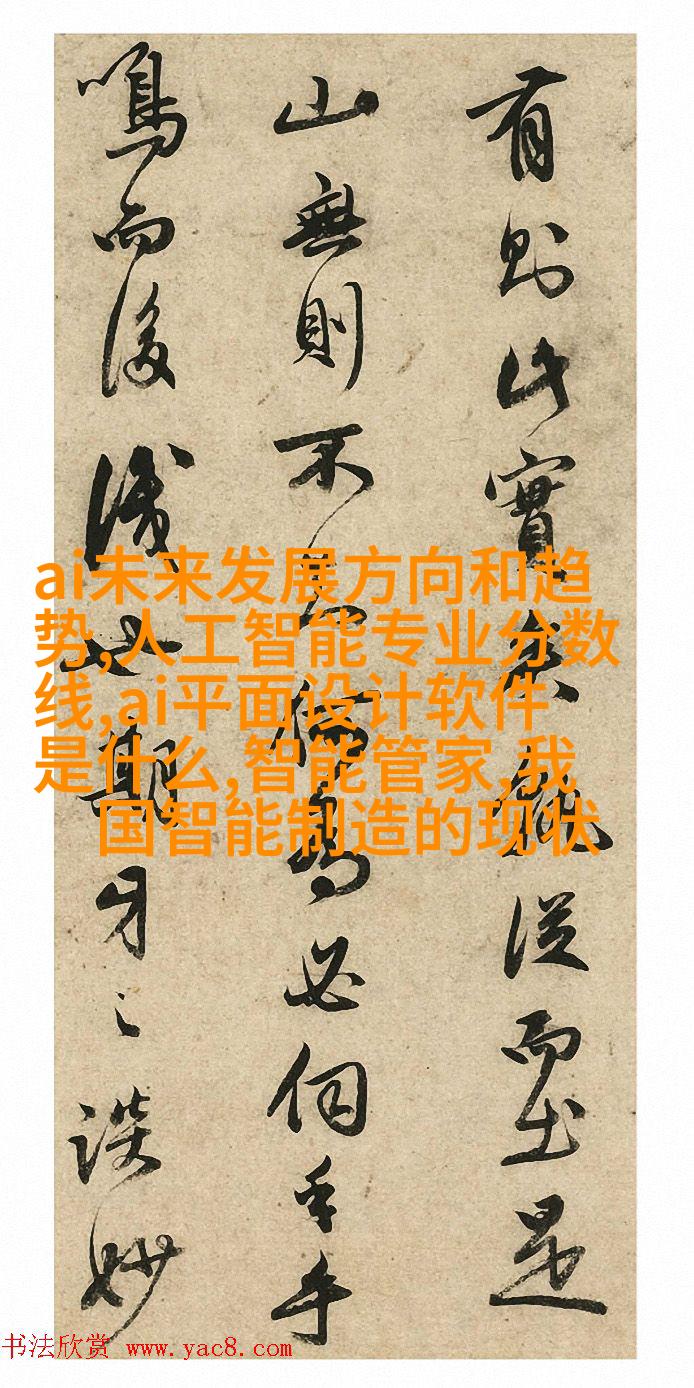 有則此實從而出是
山無則不為必伺手乎
鳴而後識此期牙之談妙
ai未来发展方向和趋
势,人工智能专业分数
线,ai平面设计软件
是什么,智能管家,我
国智能制造的现状
书法欣赏 www.yac8.com